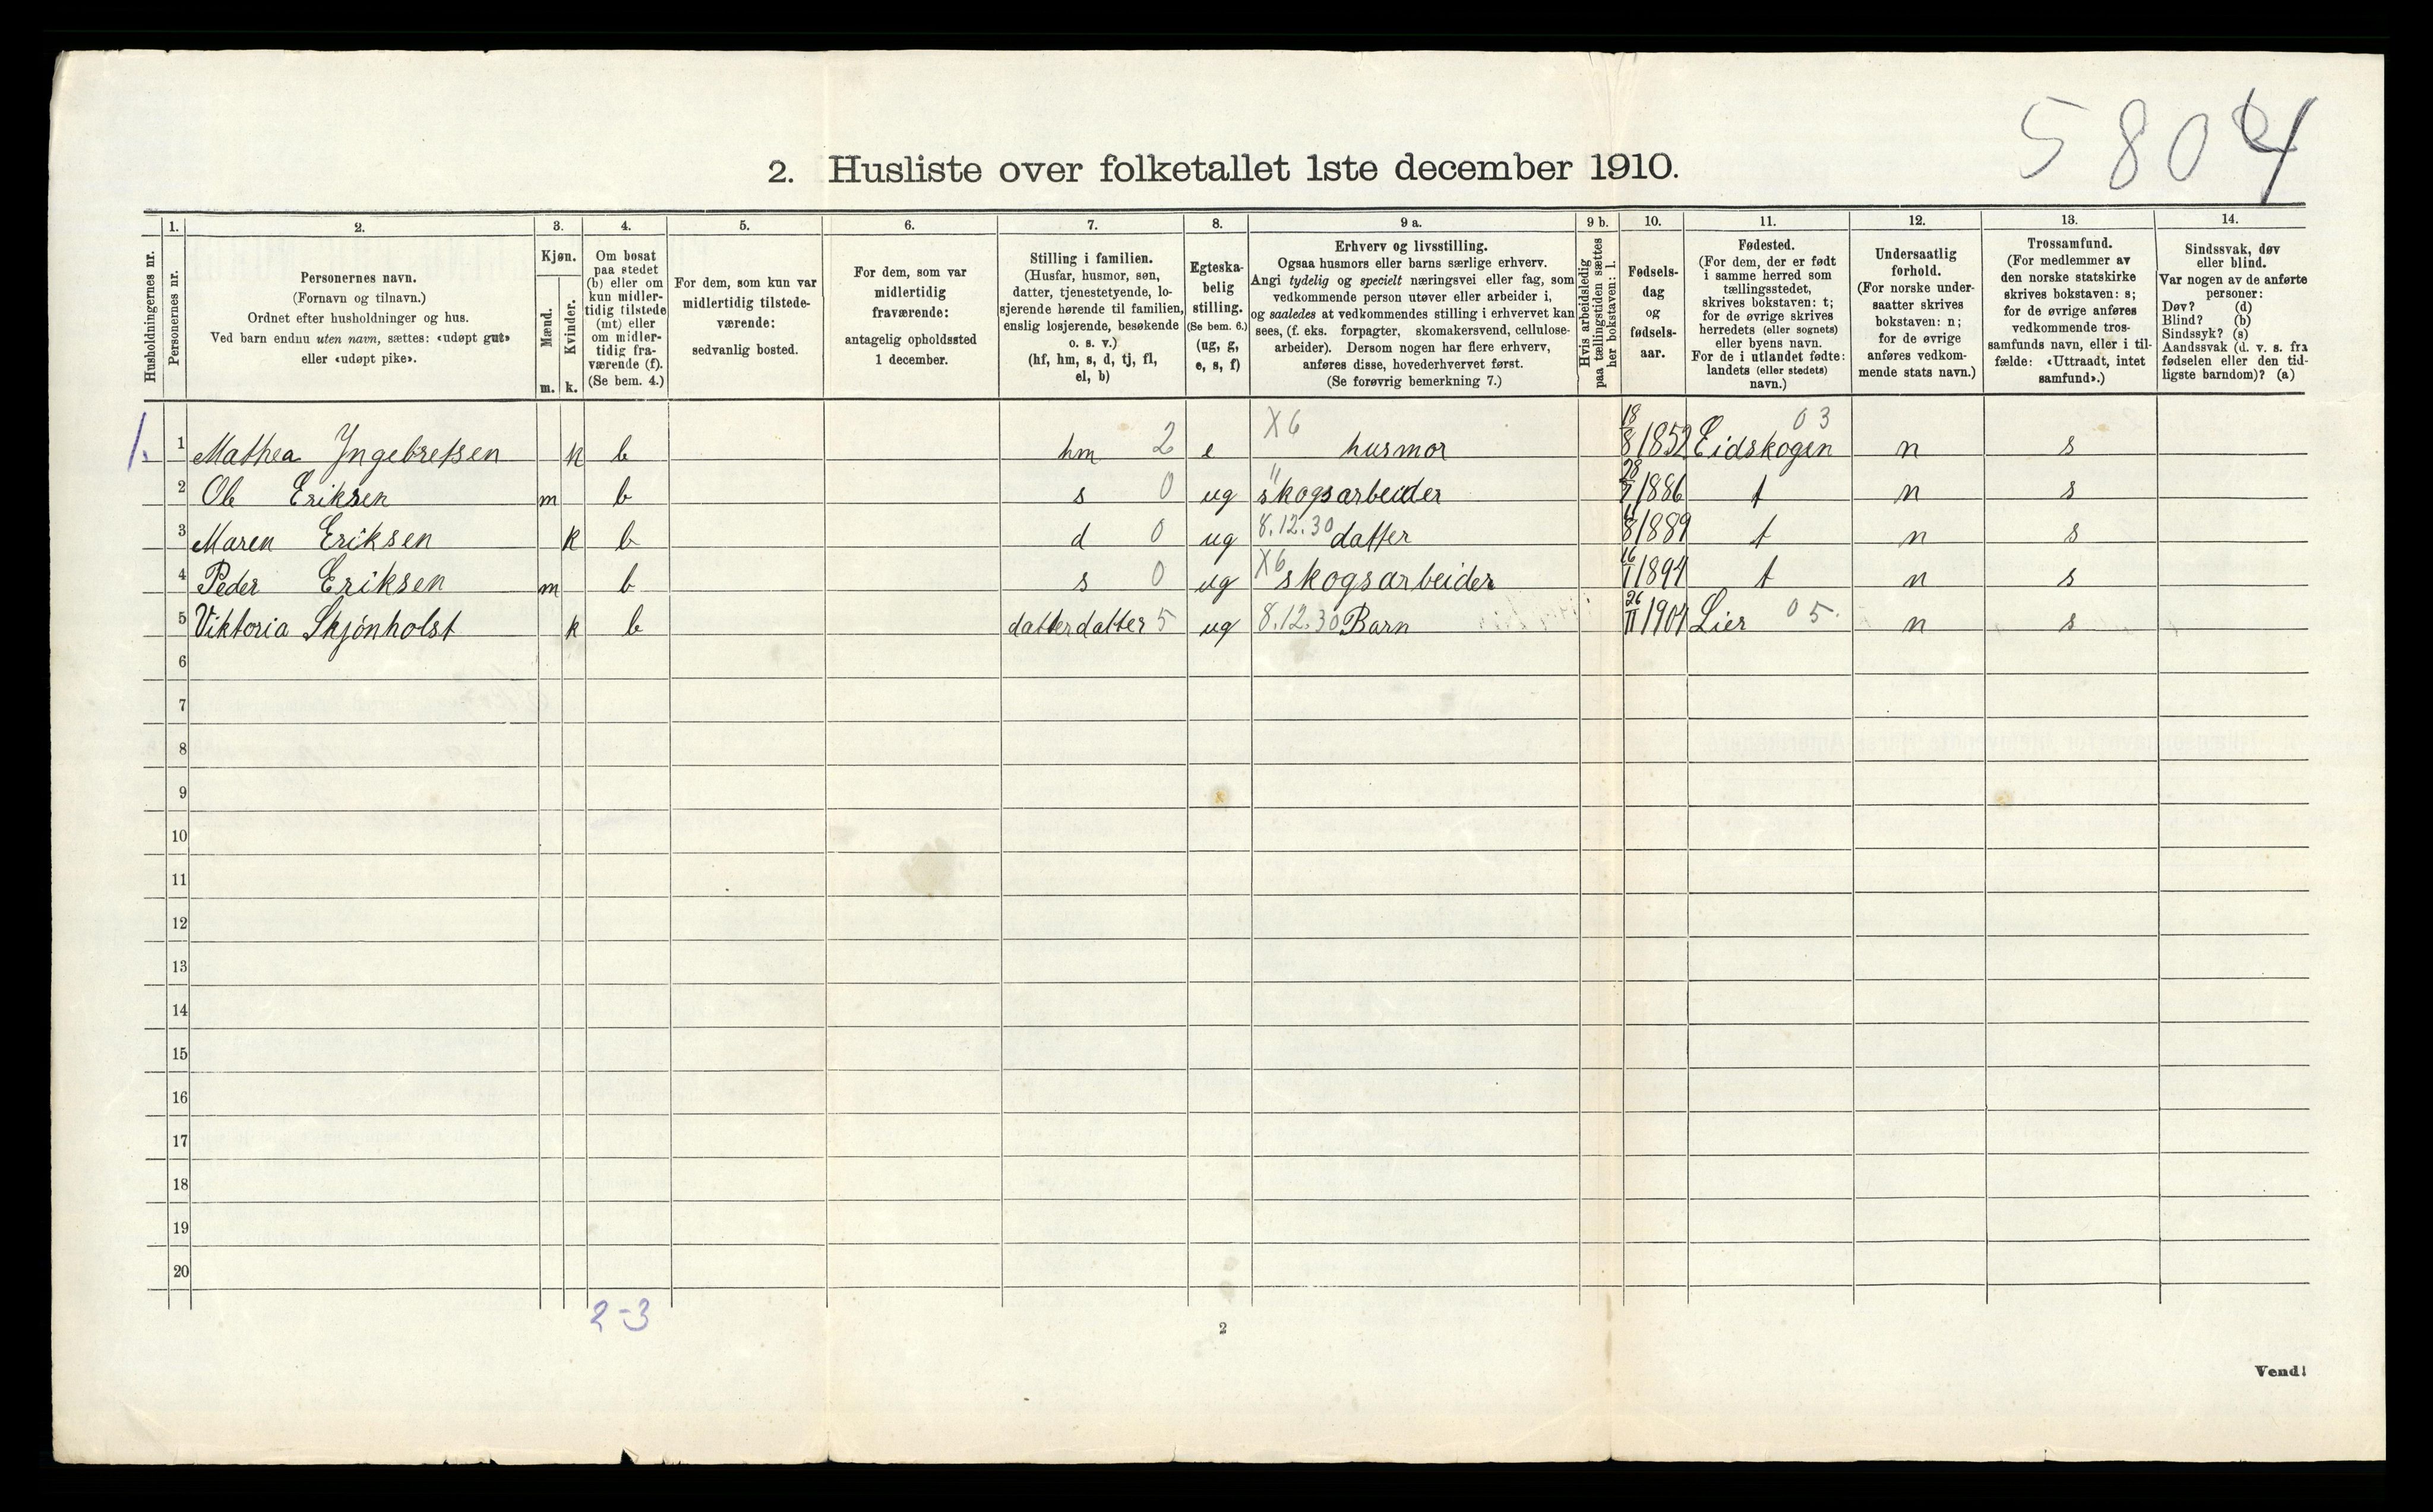 5804
2. Husliste over folketallet 1ste december 1910.
1. 2. 3. 4. 5. 6. 7. 8. 9 a. 9 b. 10. 11. 12. 13. 14.
Husholdningernes nr.
Personernes nr.
Personernes navn.
(Fornavn og tilnavn.)
Ordnet efter husholdninger og hus.
Ved barn endnu uten navn, sættes: «udøpt gut»
eller «udøpt pike».
Kjøn.
Mænd.
Kvinder.
m. k.
Om bosat
paa stedet
(b) eller om
kun midler-
tidig tilstede
(mt) eller
om midler-
tidig fra-
værende (f).
(Se bem. 4.)
For dem, som kun var
midlertidig tilstede-
værende:
sedvanlig bosted.
For dem, som var
midlertidig
fraværende:
antagelig opholdssted
1 december.
Stilling i familien.
(Husfar, husmor, søn,
datter, tjenestetyende, lo-
sjerende hørende til familien,
enslig losjerende, besøkende
o. s. v.)
(hf, hm, s, d, tj, fl,
el, b)
Egteska-
belig
stilling.
(Se bem. 6.)
(ug, g,
e, s, f)
Erhverv og livsstilling.
Ogsaa husmors eller barns særlige erhverv.
Angi tydelig og specielt næringsvei eller fag, som
vedkommende person utøver eller arbeider i,
og saaledes at vedkommendes stilling i erhvervet kan
sees, (f. eks. forpagter, skomakersvend, cellulose-
arbeider). Dersom nogen har flere erhverv,
anføres disse, hovederhvervet først.
(Se forøvrig bemerkning 7.)
Hvis arbeidsledig
paa tællingstiden sættes
her bokstaven: l.
Fødsels-
dag
og
fødsels-
aar.
Fødested.
(For dem, der er født
i samme herred som
tællingsstedet,
skrives bokstaven: t;
for de øvrige skrives
herredets (eller sognets)
eller byens navn.
For de i utlandet fødte:
landets (eller stedets)
navn.)
Undersaatlig
forhold.
(For norske under-
saatter skrives
bokstaven: n;
for de øvrige
anføres vedkom-
mende stats navn.)
Trossamfund.
(For medlemmer av
den norske statskirke
skrives bokstaven: s;
for de øvrige anføres
vedkommende tros-
samfunds navn, eller i til-
fælde: «Uttraadt, intet
samfund».)
Sindssvak, døv
eller blind.
Var nogen av de anførte
personer:
Døv? (d)
Blind? (b)
Sindssyk? (s)
Aandssvak (d. v. s. fra
fødselen eller den tid-
ligste barndom)? (a)
1. 1 Mathea Yngebretsen k b hm 2 e X6 husmor 18/8 1852 Eidskogen 03 n s
2 Ole Eriksen m b s 0 ug " skogsarbeider 28/7 1886 t n s
3 Maren Eriksen k b d 0 ug 8.12.30 datter /8 1889 t n s
4 Peder Eriksen m b s 0 ug X6 skogsarbeider 16/1 1894 t n s
5 Viktoria Skjønholst k b datterdatter 5 ug 8.12.30 Barn 26/11 1904 Lier 05. n s
6
7
8
9
10
11
12
13
14
15
16
17
18
19
20
2-3
2
Vend!